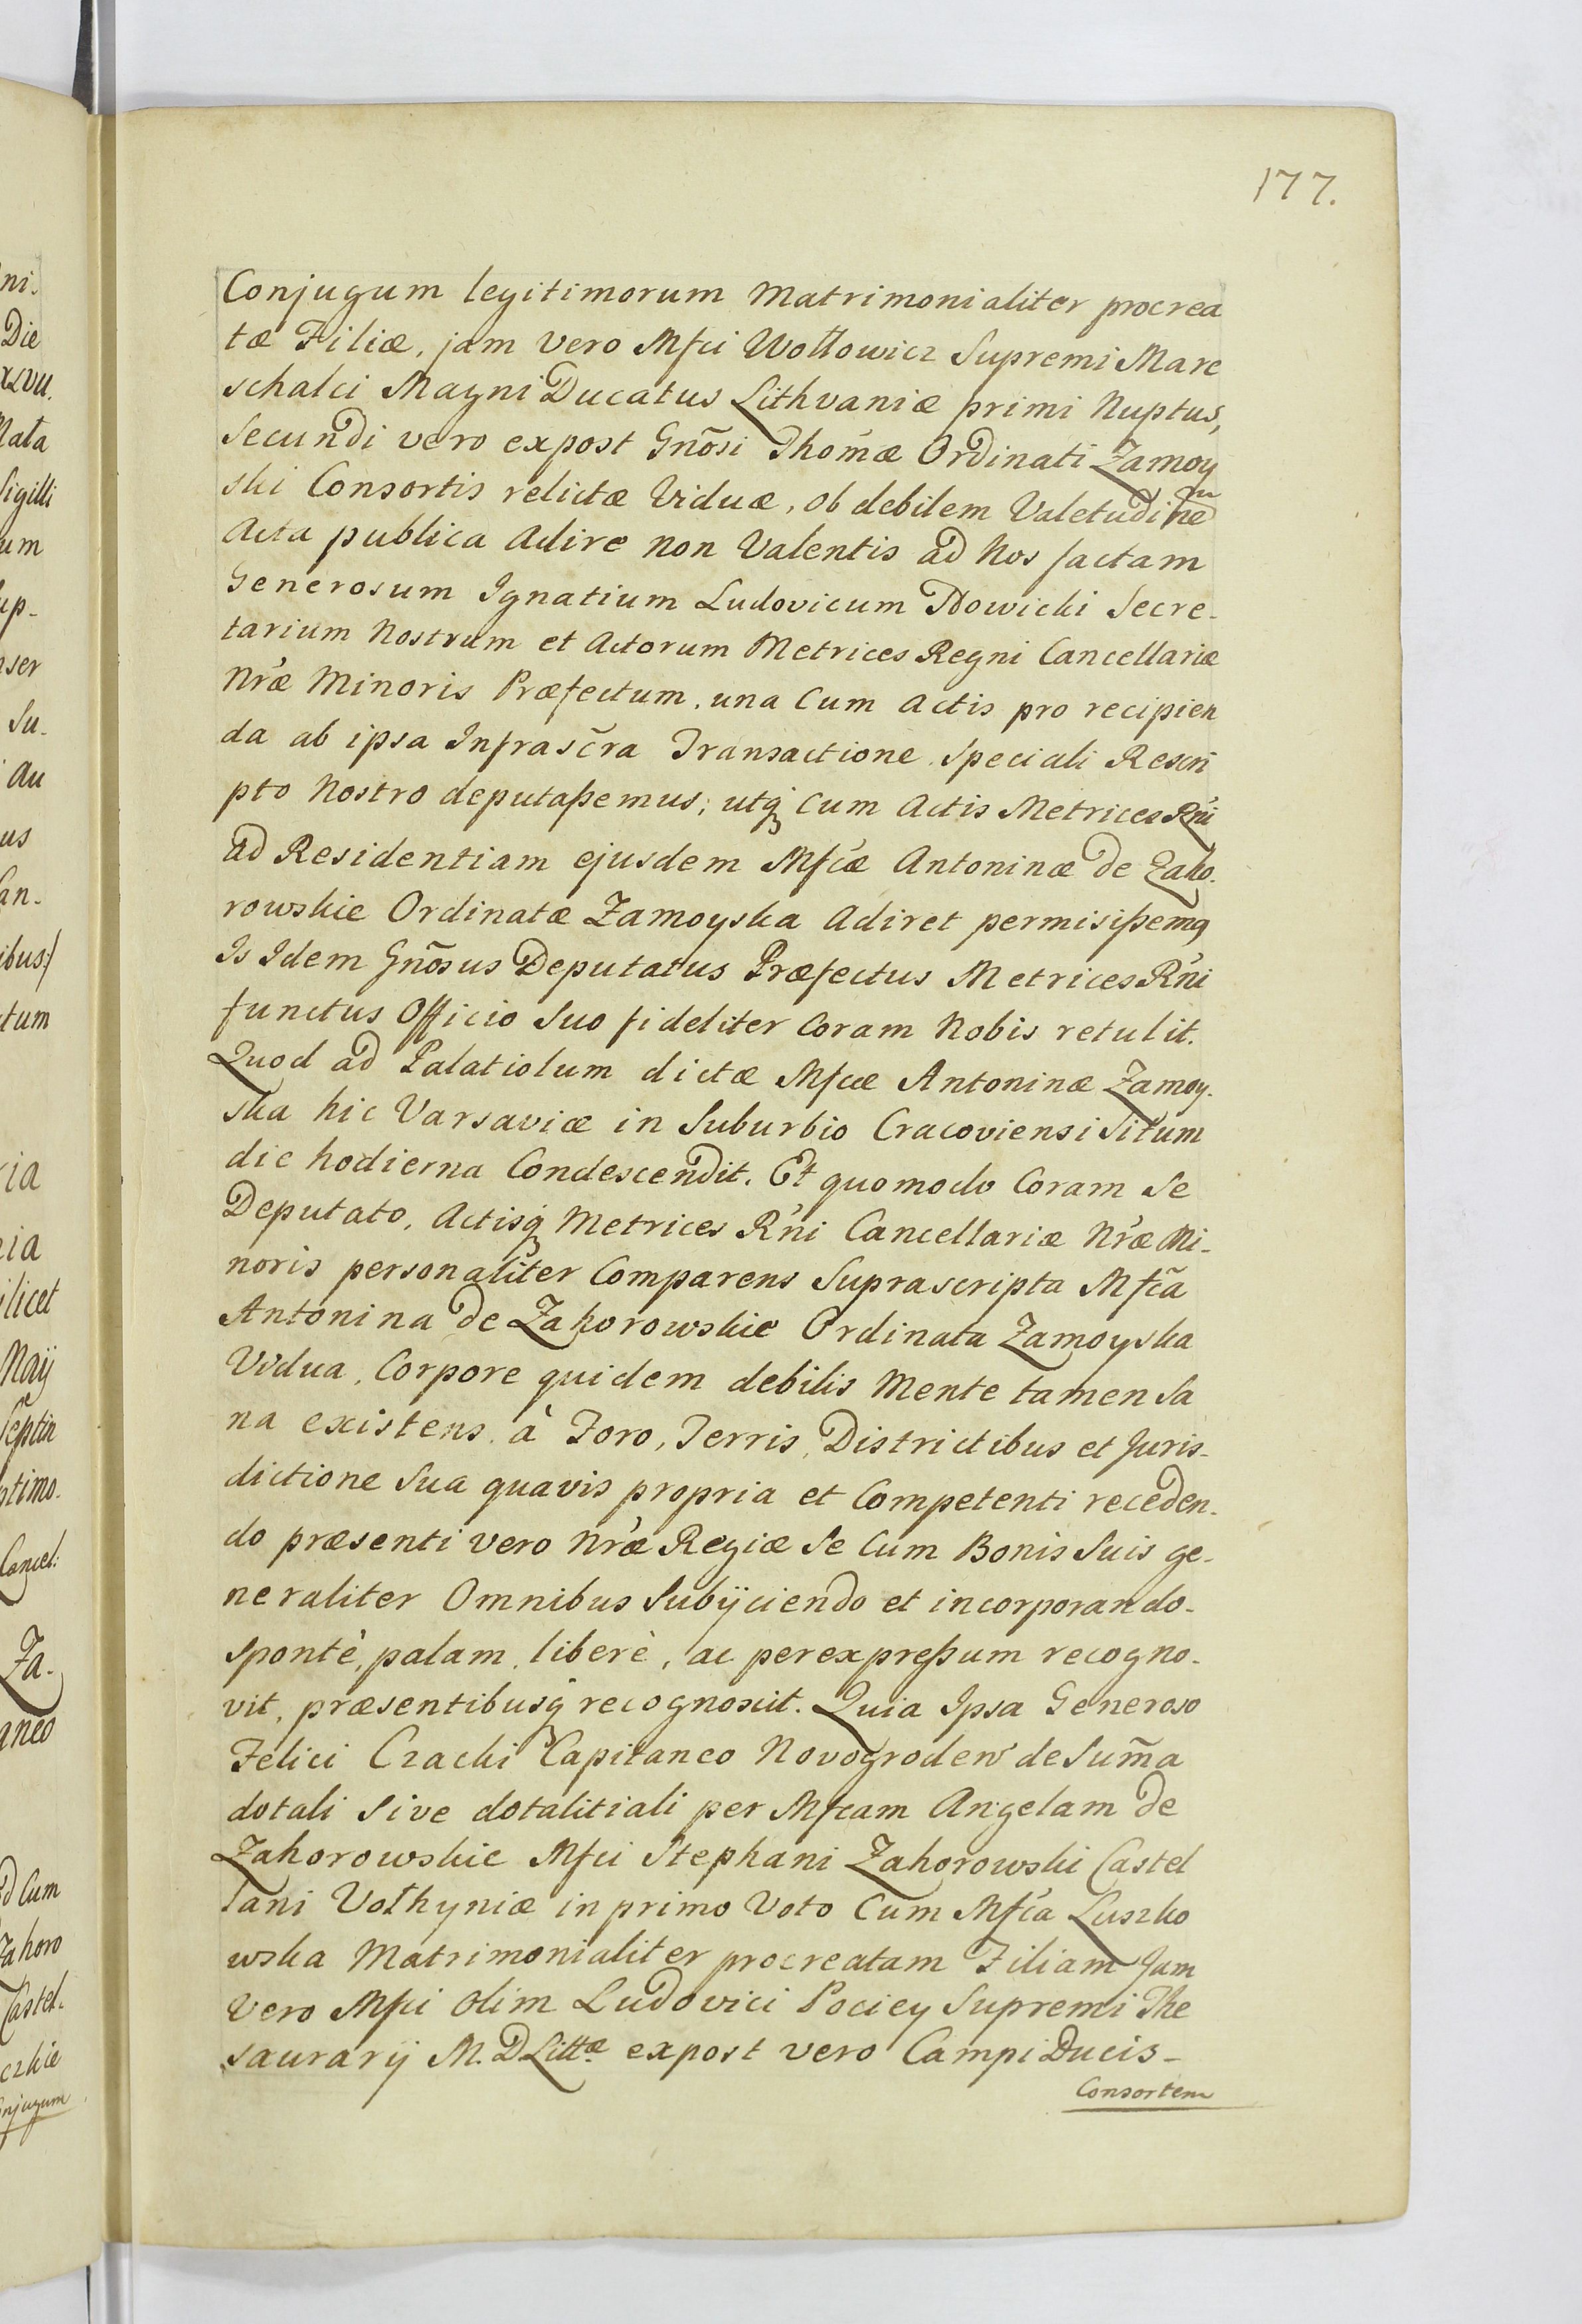 177.
Conjugum legitimorum Matrimonialiter procrea
tæ Filiæ, jam vero Mfci Wołłowicz Supremi Mare
schalci Magni Ducatus Lithvaniæ primi Nuptus,
Secundi vero expost Gnõsi Thomæ Ordinati Zamoy
ski Consortis relictæ Viduæ, ob debilem Valetudinẽ
Acta publica Adire non Valentis ad Nos factam
Generosum Ignatium Ludovicum Nowicki Secre-
tarium Nostrum et Actorum Metrices Regni Cancellariæ
Nr̃æ Minoris Præfectum, una Cum Actis pro recipien
da ab ipsa Infrasc̃ra Transactione Speciali Rescri
pto Nostro deputaßemus; utq́ Cum Actis Metrices Rńi
ad Residentiam ejusdem Mfcæ Antoninæ de Zaho-
rowskie Ordinatæ Zamoyska Adiret permisißemq
Is Idem Gnõsus Deputatus Præfectus Metrices Rńi
functus Officio Suo fideliter Coram Nobis retulit.
Quod ad Palatiolum dictæ Mfcæ Antoninæ Zamoy-
ska hic Varsaviæ in Suburbio Cracoviensi Situm
die hodierna Condescendit. Et quomodo Coram Se
Deputato, Actisq́ Metrices Rńi Cancellariæ Nr̃æ Mi-
noris personaliter Comparens Suprascripta Mfc̃a
Antonina de Zahorowskie Ordinata Zamoyska
Vidua, Corpore quidem debilis Mente tamen Sa
na existens, à Foro, Terris, Districtibus et Juris-
dictione Sua quavis propria et Competenti receden-
do præsenti vero Nr̃æ Regiæ Se Cum Bonis Suis ge-
neraliter Omnibus Subijciendo et incorporando-
Spontè, palam, liberè, ac per expreßum recogno-
vit, præsentibusq́ recognoscit. Quia Ipsa Generoso
Felici Czacki Capitaneo Novogroden̕ de Sum̃a
dotali Sive dotalitiali per Mfcam Angelam de
Zahorowskie Mfci Stephani Zahorowski Castel
lani Vołhyniæ in primo Voto Cum Mfća Luszko
wska Matrimonialiter procreatam Filiam Jam
Vero Mfci olim Ludovici Pociey Supremi The
saurarij M. D Littæ expost vero Campi Ducis-
Consortem